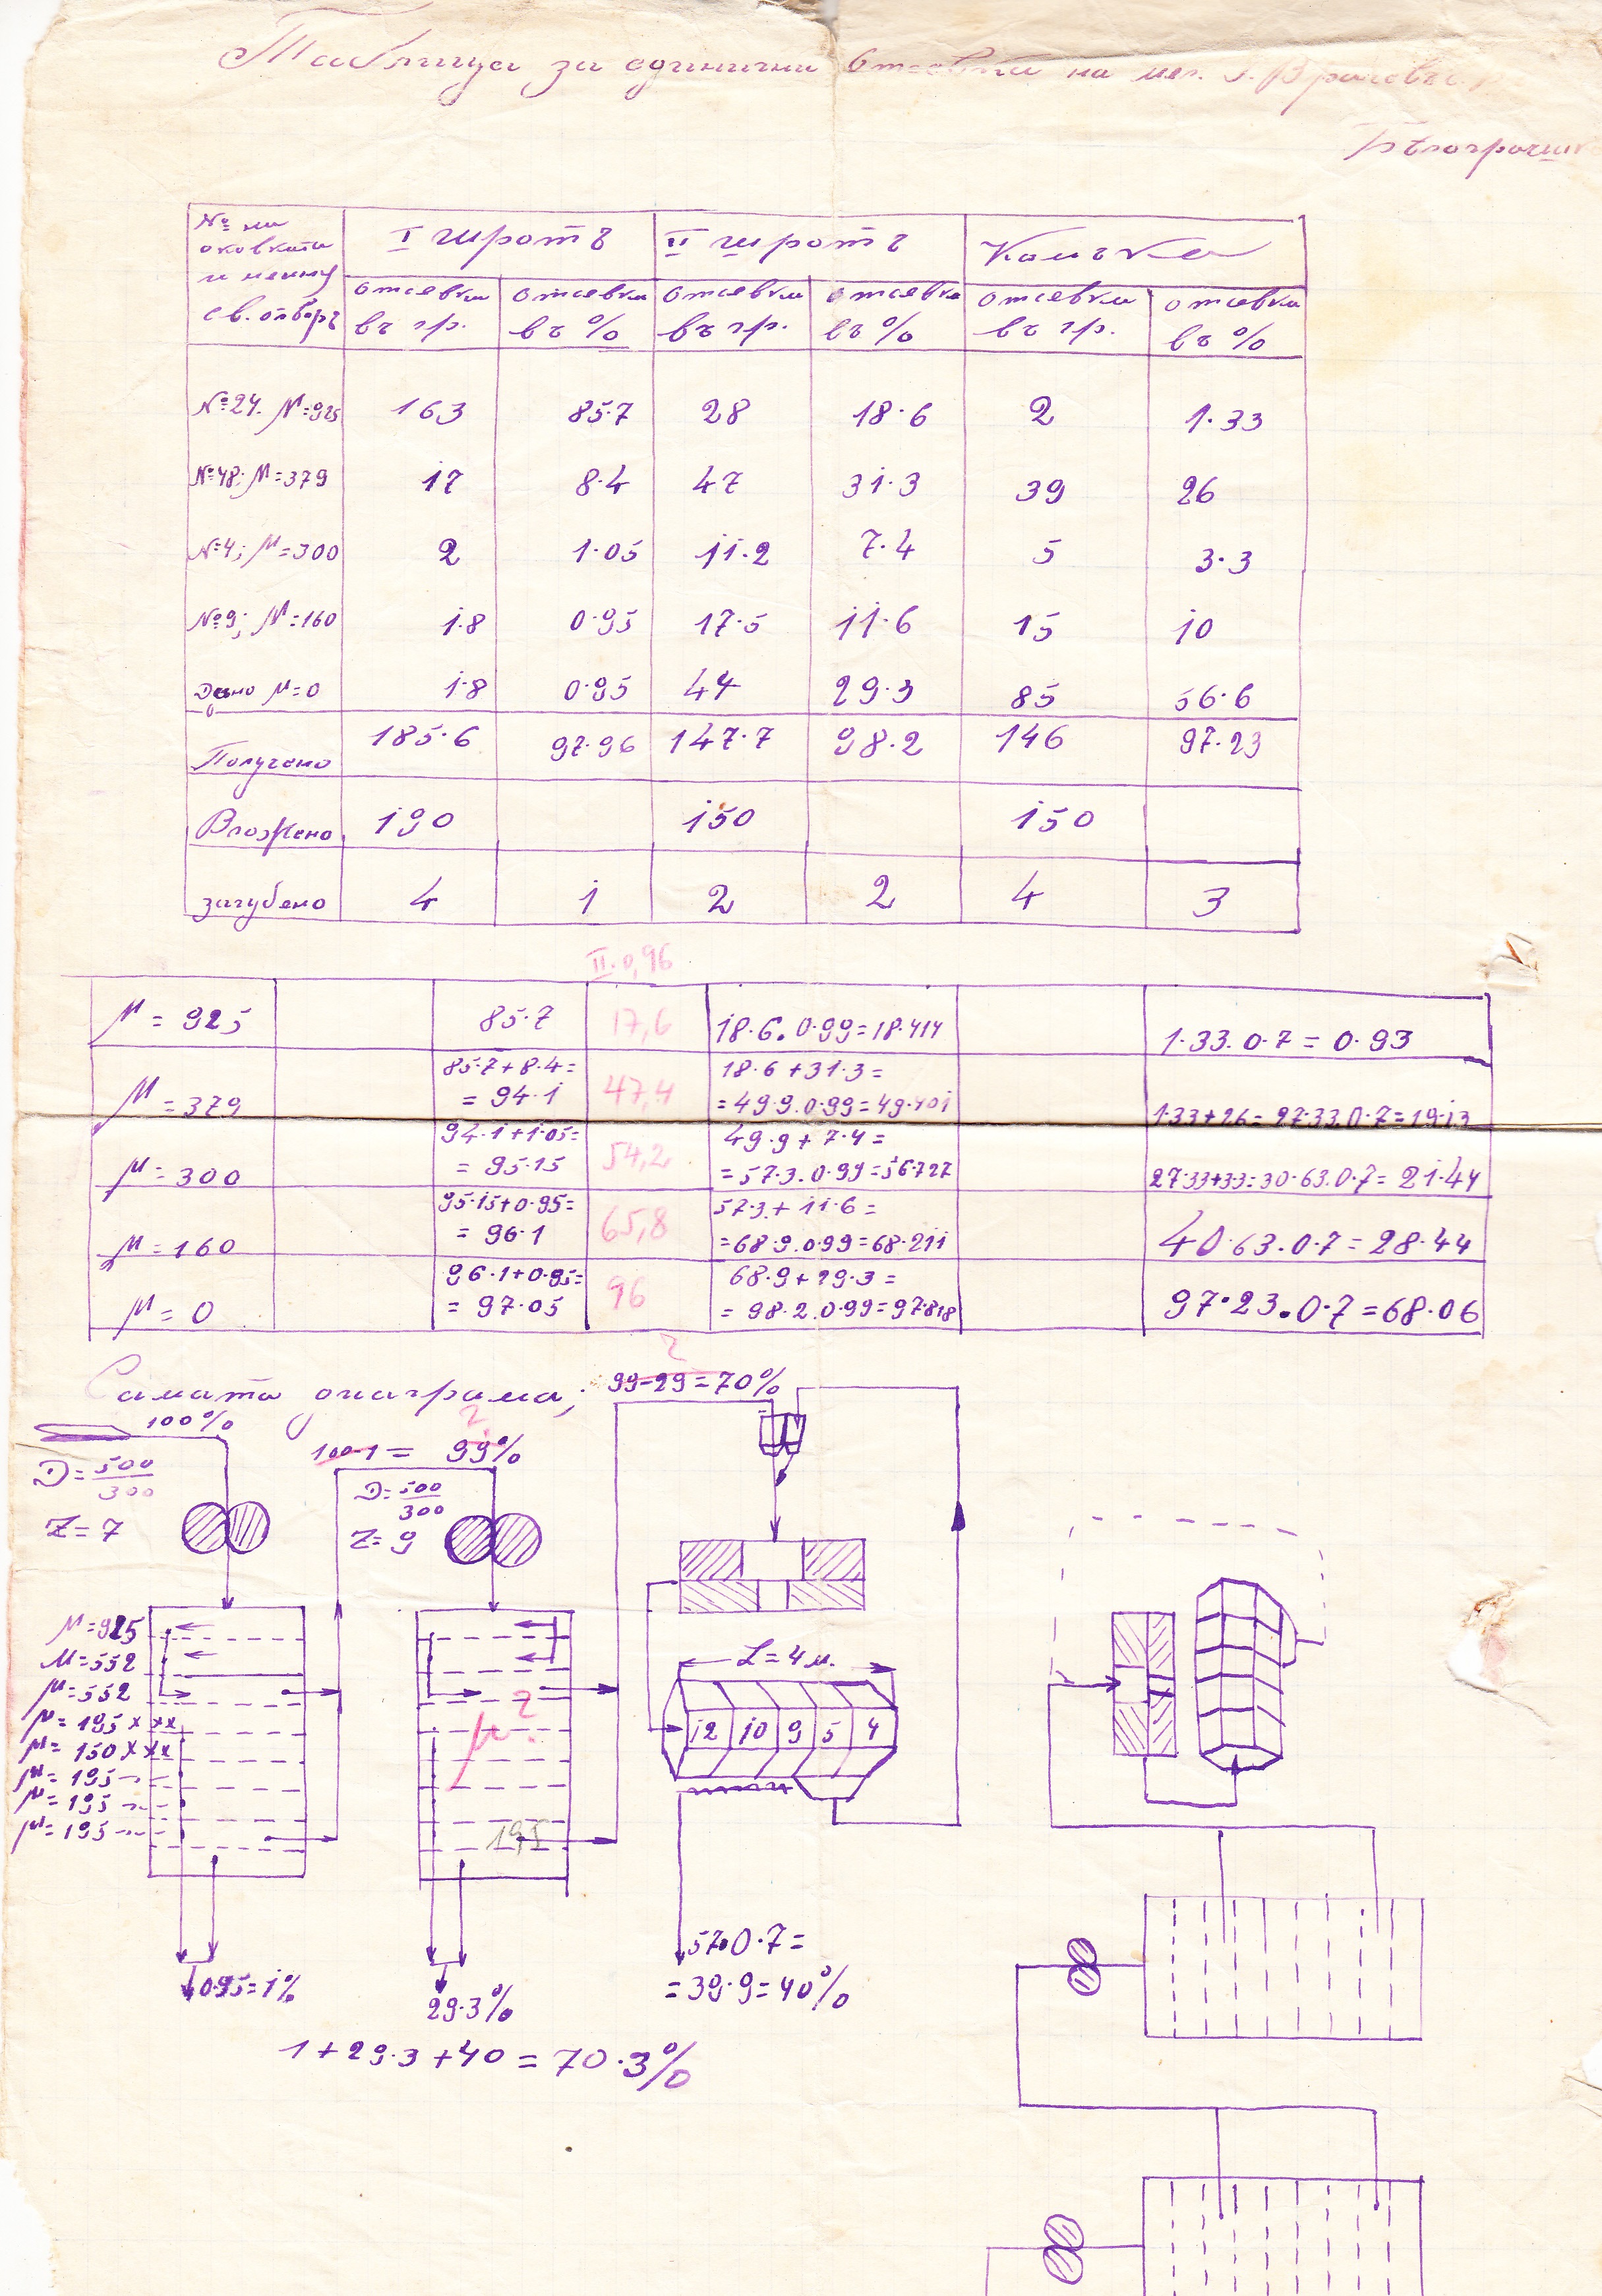 Таблица за единични отсевки на мел.
№ на I шротъ II шротъ Камъка
оковката
и нейния
св. отворъ
отсевки отсевки отсевки отсевки отсевки отсевки
въ гр. въ % въ гр. въ % въ гр. въ %
№24. М=925 163 85.7 28 18.6 2 1.33
№48; М=379 17 8.4 47 31.3 39 26
№4; М=300 2 1.05 11.2 7.4 5 3.3
№9; М=160 1.8 0.95 17.5 11.6 15 10
Дъно М=0 1.8 0.95 44 29.3 85 56.6
Получено 185.6 97.96 147.7 98.2 146 97.23
Вложено 190 150 150
загубено 4 1 2 2 4 3
II. 0,96
М = 925 85.7 17,6 18.6.0.99=18.414 1.33.0.7=0.93
М = 379 85.7+8.4= 47,4 18.6+31.3= 1.33+26=27.33.0.7=19.13
= 94.1 =49.9.0.99=49.401
μ = 300 94.1+1.05= 54,2 49.9+7.4= 27.33+3.3=30.63.0.7=21.44
= 95.15 =57.3.0.99=56.727
μ = 160 95.15+0.95= 65,8 57.3+11.6= 40.63.0.7=28.44
= 96.1 =68.9.0.99=68.211
М = 0 96.1+0.95= 96 68.9+29.3= 97.23.0.7=68.06
= 97.05 = 98.2.0.99=97.818
Самата диаграма;
?
99-29=70%
100%
?
100-1= 99%
D=500/300
Z=7
D=500/300
Z=9
М=925
М=552
μ=552
μ=195 x xx
μ=150 x xx
μ=195
μ=195
μ=195
μ?
195
L=4м.
12 10 9 5 4
0.95=1%
29.3%
57.0.7=
=39.9=40%
1+29.3+40=70.3%